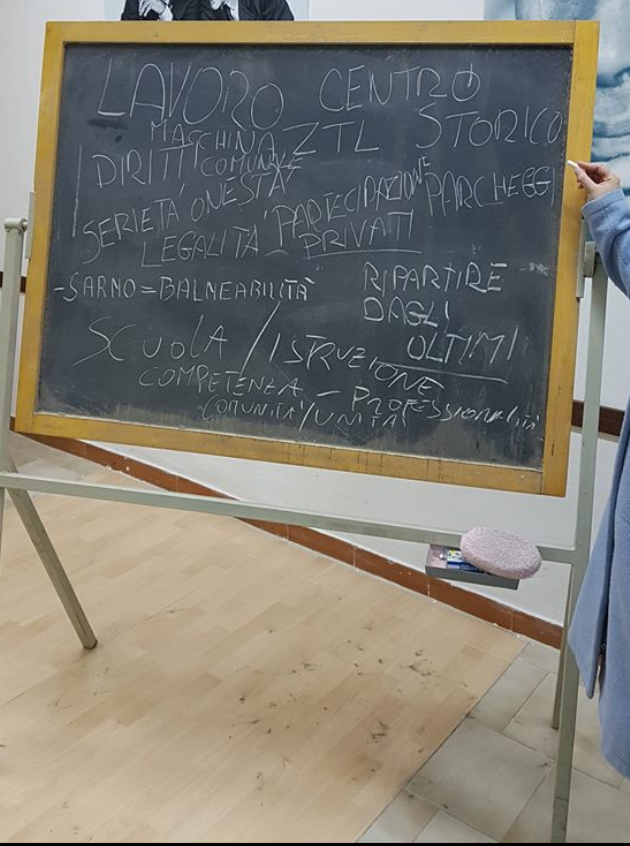 LAVORO CENTRO
MACCHINA ZTL STORICO
DIRITTI COMUNALE
SERIETA' ONESTA' PARTECIPAZIONE PARCHEGGI
LEGALITA' PRIVATI
-SARNO=BALNEABILITÀ RIPARTIRE
DAGLI
SCUOLA / ISTRUZIONE OLTIMI
COMPETENZA - PROFESSIONALITÀ
COMUNITA'/UNITA'